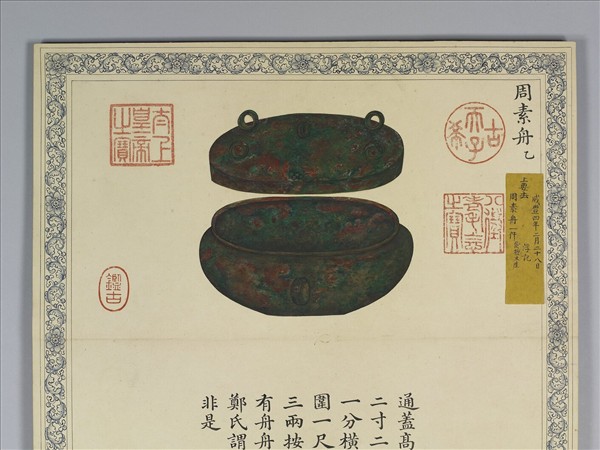 周素舟乙
咸豐四年二月二十八日
上要出
周素舟一件
古希天子
八徵耄念之寶
太上皇帝之寶
鑑古
通蓋高
二寸二
一分橫
圍一尺
三兩按
有舟舟
鄭氏謂
非是